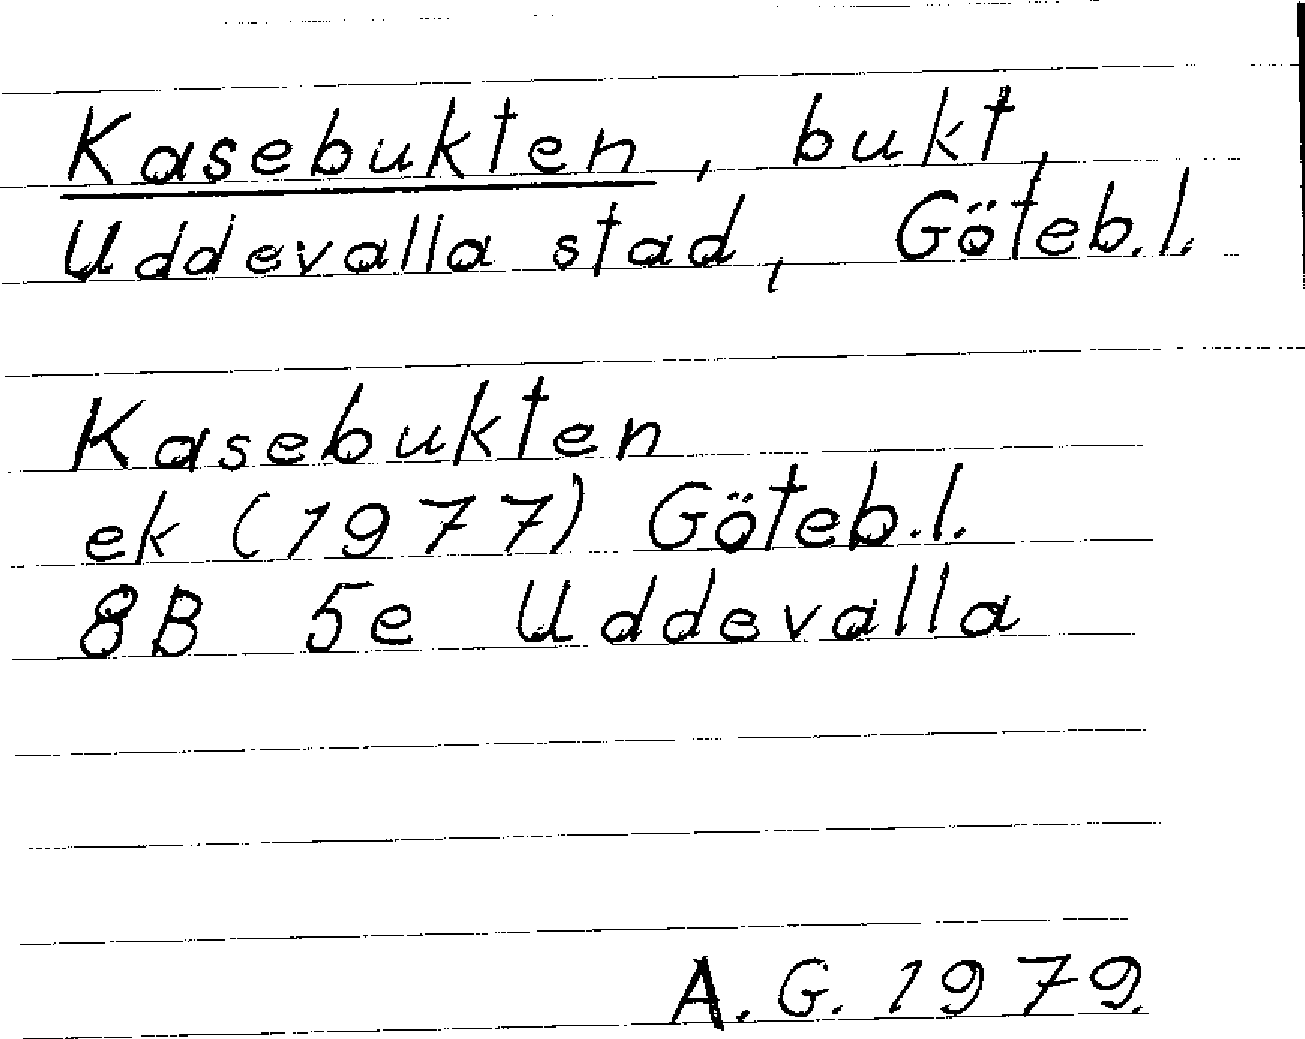 Kasebukten, bukt,
Uddevalla stad, Göteb.l.
Kasebukten
ek (1977) Göteb.l.
8B 5e Uddevalla
A.G. 1979.